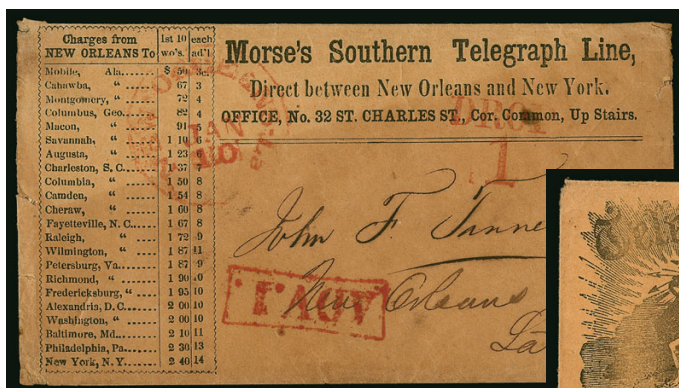 Charges from
NEW ORLEANS To
1st 10
wo's.
each
ad'l
Mobile, Ala....... $ 50 3c.
Cahawba, “ ....... 67 3
Montgomery, “ ....... 72 4
Columbus, Geo....... 82 4
Macon, “ ....... 91 5
Savannah, “ ....... 1 10 6
Augusta, “ ....... 1 23 6
Charleston, S. C....... 1 37 7
Columbia, “ ....... 1 50 8
Camden, “ ....... 1 54 8
Cheraw, “ ....... 1 60 8
Fayetteville, N. C...... 1 67 8
Raleigh, “ ....... 1 72 9
Wilmington, “ ....... 1 87 11
Petersburg, Va....... 1 87 9
Richmond, “ ....... 1 90
Fredericksburg, “ ....... 1 95 10
Alexandria, D. C....... 2 00 10
Washington, “ ....... 2 00 10
Baltimore, Md....... 2 10 11
Philadelphia, Pa....... 2 30 13
New York, N. Y....... 2 40 14
Morse's Southern Telegraph Line,
Direct between New Orleans and New York.
OFFICE, No. 32 ST. CHARLES ST., Cor. Common, Up Stairs.
JAN
10
La
DROP
1
John F. Tanne
New Orleans
La